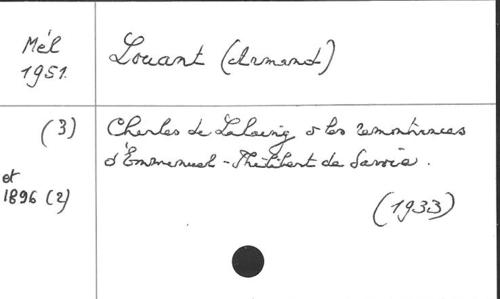 Mél
1951.
Louant (Armand)
(3)
Charles de Lalaing & les remontrances
d'Emmanuel-Philibert de Savoie.
et
1896 (2)
(1933)